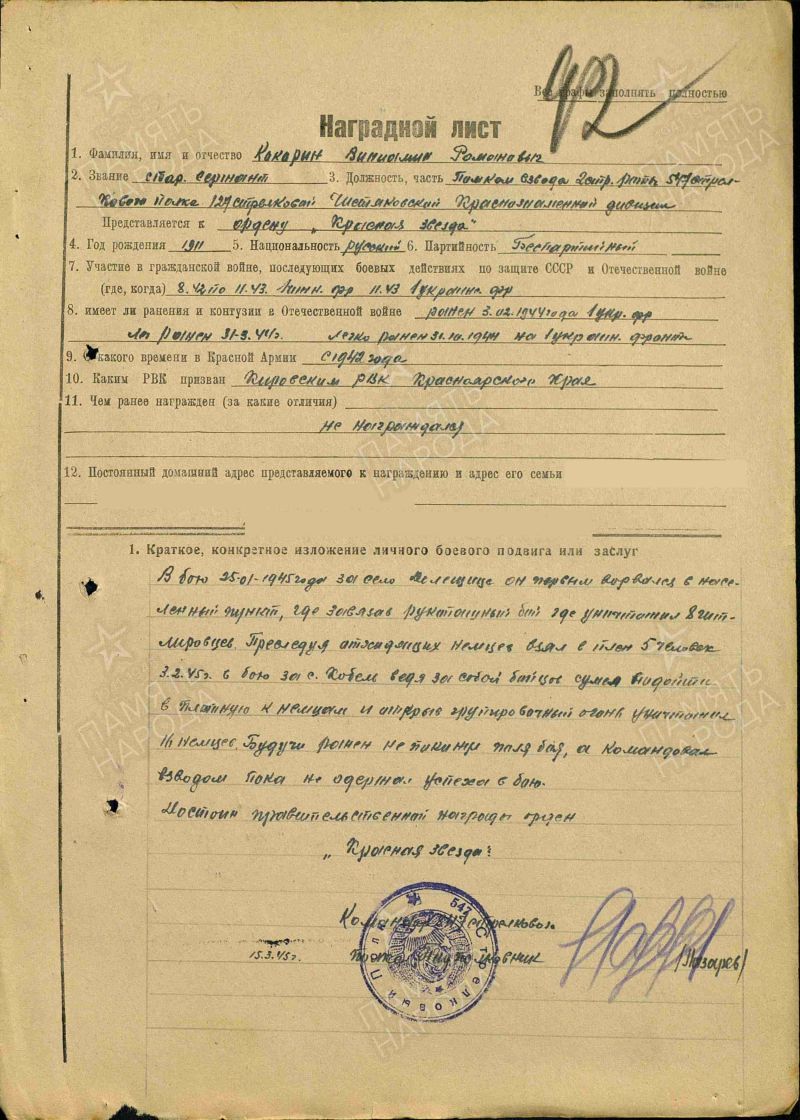 92
Все графы заполнять полностью
Наградной лист
1. Фамилия, имя и отчество Какарин Виниамин Романович
2. Звание стар. сержант 3. Должность, часть Помком взвода 2 стр. роты 547 стрел-
кового полка 127 стрелковой Чистяковской Краснознаменной дивизии
Представляется к ордену „Красная звезда"
4. Год рождения 1911 5. Национальность русский 6. Партийность Беспартийный
7. Участие в гражданской войне, последующих боевых действиях по защите СССР и Отечественной войне
(где, когда) 8.42 по 11.43. фр 11.43 1 украин. фр
8. имеет ли ранения и контузии в Отечественной войне ранен 3.02.1944 года 1 укр. фр
ранен 31-3.44г. легко ранен 31.10.1944 на 1 украин. фронте
9. С какого времени в Красной Армии с 1942 года
10. Каким РВК призван Кировским РВК Красноярского Края
11. Чем ранее награжден (за какие отличия)
не награждался
12. Постоянный домашний адрес представляемого к награждению и адрес его семьи
1. Краткое, конкретное изложение личного боевого подвига или заслуг
В бою 25-01-1945 года за село он первым ворвался в насе-
ленный пункт, где завязав рукопашный бой где уничтожил 8 гит-
леровцев. Преследуя отходящих немцев взял в плен 5 человек
3.2.45г. в бою за с. Кобем ведя за собой бойцов сумел подойти
в плотную к немцам и открыв огонь уничтожил
16 немцев. Будучи ранен не покинул поля боя, а командовал
взводом пока не одержал успеха в бою.
Достоин правительственной награды орден
„Красная звезда"
Командир 547 Стрелкового
15.3.45г. полка Подполковник (Лазарев)
547 Стрелковый Полк
ПАМЯТЬ НАРОДА